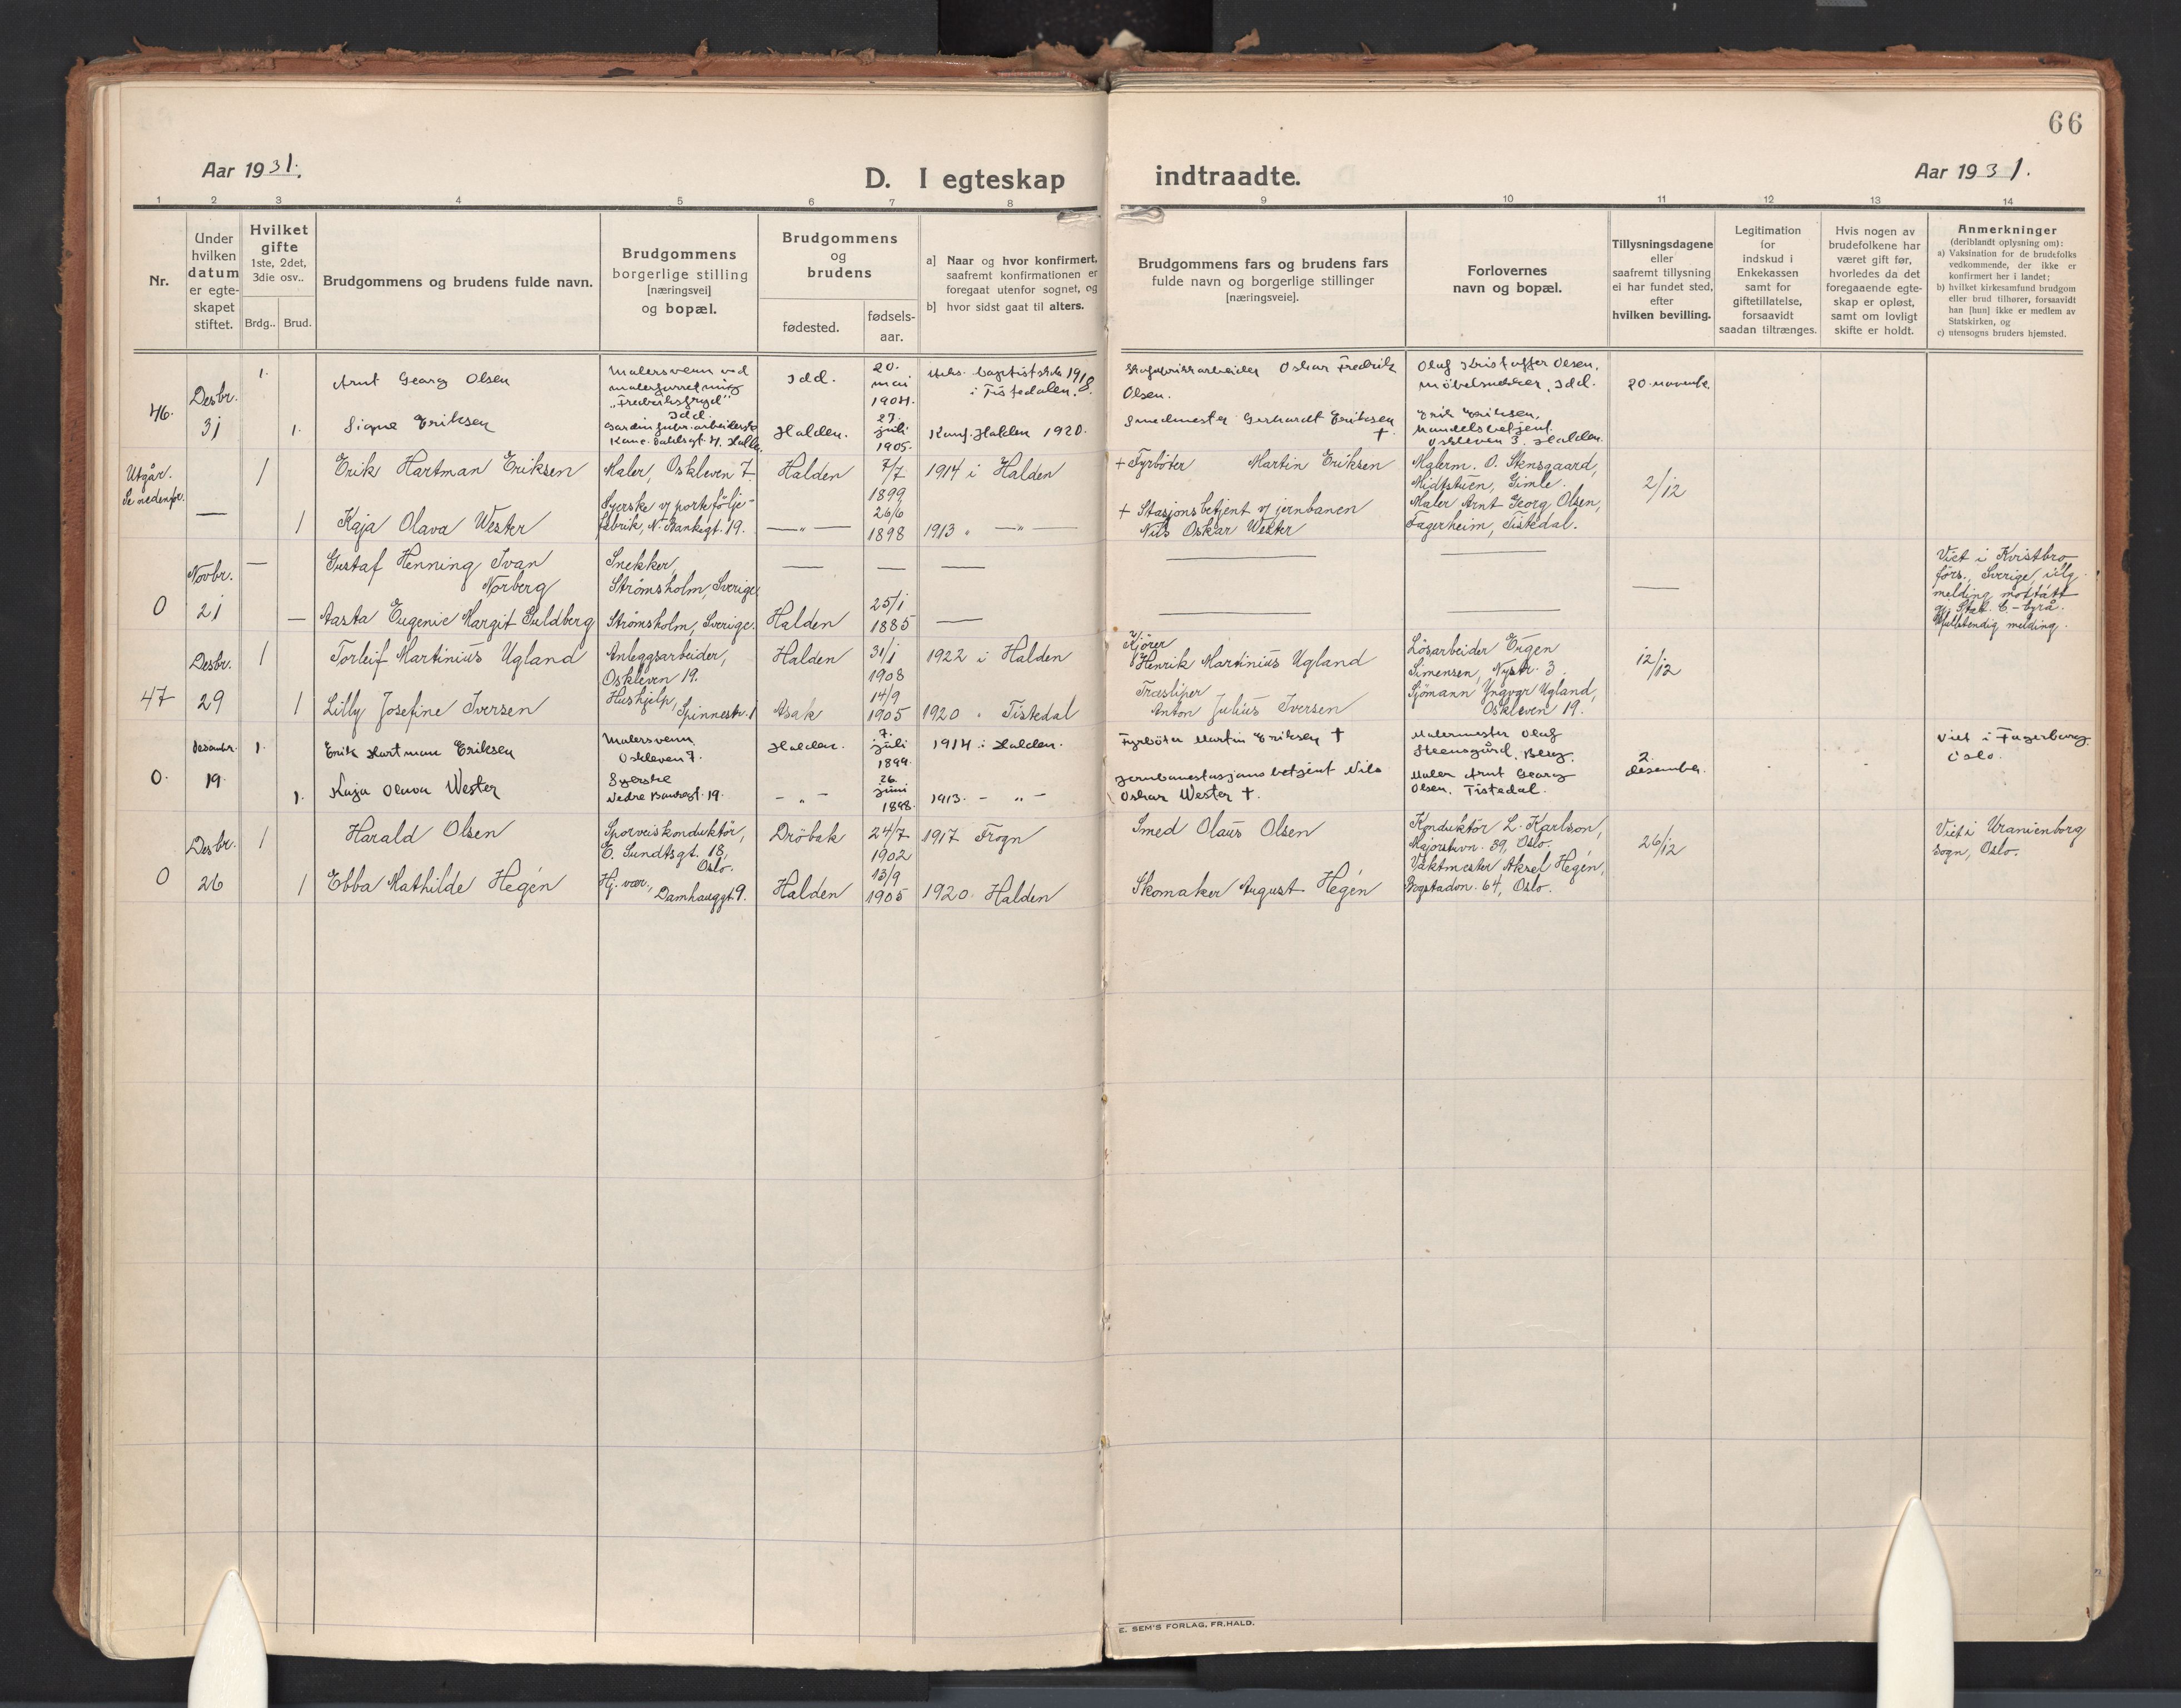 66
Aar 1931.
D. I egteskap
indtraadte.
Aar 1931.
1 2 3 4 5 6 7 8 9 10 11 12 13 14
Nr.
Under
hvilken
datum
er egte-
skapet
stiftet.
Hvilket
gifte
1ste, 2det,
3die osv..
Brdg.. Brud.
Brudgommens og brudens fulde navn.
Brudgommens
borgerlige stilling
[næringsvei]
og bopæl.
Brudgommens
og
brudens
fødested.
fødsels-
aar.
a] Naar og hvor konfirmert,
saafremt konfirmationen er
foregaat utenfor sognet, og
b] hvor sidst gaat til alters.
Brudgommens fars og brudens fars
fulde navn og borgerlige stillinger
[næringsveie].
Forlovernes
navn og bopæl.
Tillysningsdagene
eller
saafremt tillysning
ei har fundet sted,
efter
hvilken bevilling.
Legitimation
for
indskud i
Enkekassen
samt for
giftetillatelse,
forsaavidt
saadan tiltrænges.
Hvis nogen av
brudefolkene har
været gift før,
hvorledes da det
foregaaende egte-
skap er opløst,
samt om lovligt
skifte er holdt.
Anmerkninger
(deriblandt oplysning om):
a) Vaksination for de brudefolks
vedkommende, der ikke er
konfirmert her i landet;
b) hvilket kirkesamfund brudgom
eller brud tilhører, forsaavidt
han [hun] ikke er medlem av
Statskirken, og
c) utensogns bruders hjemsted.
46.
Desbr.
31
1.
Arnt Georg Olsen
Malersvenn ved
malerforretning
"Fredriksfryd"
Idd.
Idd.
20.
mai
1904.
baptistkirke 1918
i Tistedalen.
Skofabrikkarbeider Oskar Fredrik
Olsen.
Oluf Kristoffer Olsen,
møbelsnekker, Idd.
20. novembr.
1.
Signe Eriksen
Halden.
27.
juli
1905.
Konf. Halden 1920.
Smedmester Gerhardt Eriksen
†
Erik Eriksen,
handelsbetjent.
Oskleven 3. Halden.
Utgår.
Se nedenfor.
—
1
Erik Hartman Eriksen
Maler, Oskleven 7.
Halden
7/7
1899
1914 i Halden
+ Fyrbøter Martin Eriksen
Malerm. O. Stensgaard,
Midtstuen, Gimle.
2/12
1
Kaja Olava Wester
Syerske v/ portefølje-
fabrik, N. Bankegt. 19.
— " —
26/6
1898
1913 " — " —
+ Stasjonsbetjent v/ jernbanen
Nils Oskar Wester
Maler Arnt Georg Olsen,
Fagerheim, Tistedal.
0
Novbr.
21
—
Gustaf Henning Ivan
Norberg
Snekker,
Strømsholm, Sverige
— — —
— — —
Viet i Kvistbro
førs., Sverige, iflg.
melding mottatt
gj. Stat. C-byrå.
Ufullstendig melding.
—
Aasta Eugenie Margit Guldberg
Strömsholm, Sverige.
Halden
25/1
1885
—
— —
47
Desbr.
29
1
Torleif Martinius Ugland
Anleggsarbeider,
Oskleven 19.
Halden
31/1
1908
1922 i Halden
Kjører
Henrik Martinius Ugland
Løsarbeider Eugen
Simensen, Nystr. 3.
12/12
1
Lilly Josefine Iversen
Hushjelp,
Spinnestr. 1
Asak
14/9
1905
1920 " Tistedal
Træsliper
Anton Julius Iversen
Sjømann Yngvar Ugland,
Oskleven 19.
0.
desember.
19.
1.
Erik Hartman Eriksen
Malersvenn
Oskleven 7.
Halden.
7.
juli
1899.
1914 i Halden.
Fyrbøter Martin Eriksen †
Malermester Oluf
Steensgård, Berg.
2.
desember.
Viet i Fagerborg
Oslo.
1.
Kaja Olava Wester
Syerske
Nedre Bankegt. 19.
— " —
26.
juni
1898.
1913. — " —
Jernbanestasjonsbetjent Nils
Oskar Wester †.
Maler Arnt Georg
Olsen. Tistedal.
0
Desbr.
26
1
Harald Olsen
Sporveiskonduktör,
E. Sundtsgt. 18,
Oslo.
Dröbak
24/7
1902
1917 Frogn
Smed Olaus Olsen
Konduktör L. Karlson,
Majorstuvn. 39, Oslo.
26/12
Viet i Uranienborg
sogn, Oslo.
1
Ebba Mathilde Hegén
Hj. vær.,
Damhauggt. 9.
Halden
13/9
1905
1920. Halden
Skomaker August Hegén
Vaktmester Aksel Hegén,
Bogstadvn. 64, Oslo.
E. SEM'S FORLAG, FR.HALD.